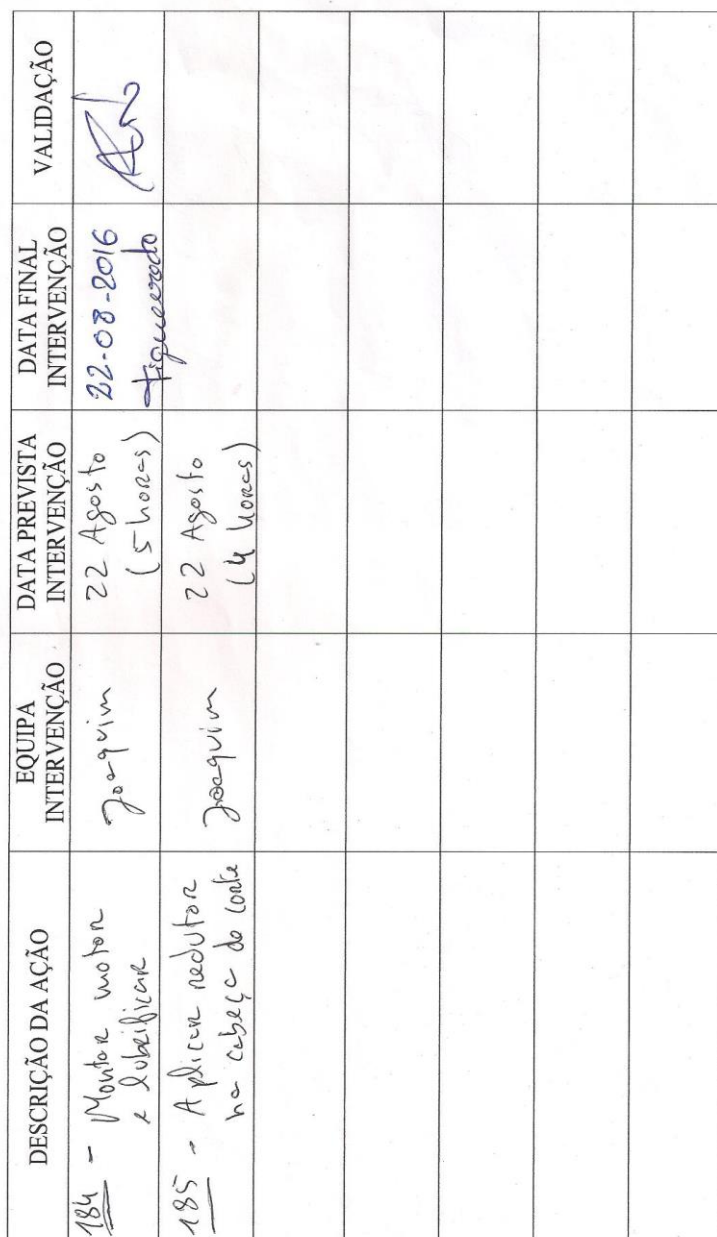 DESCRIÇÃO DA AÇÃO
EQUIPA
INTERVENÇÃO
DATA PREVISTA
INTERVENÇÃO
DATA FINAL
INTERVENÇÃO
VALIDAÇÃO
184 - Montar motor
e lubrificar
Joaquim
22 Agosto
(5 horas)
22-08-2016
185 - Aplicar redutor
na cabeça de corte
Joaquim
22 Agosto
(4 horas)